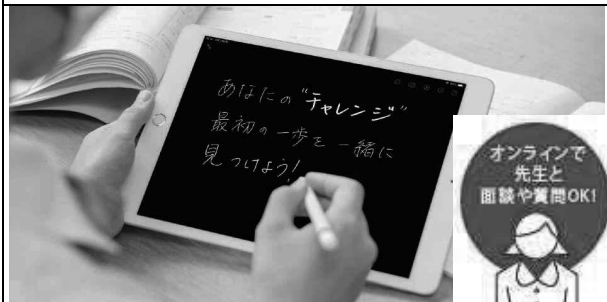 あなたの“チャレンジ”
最初の一歩を一緒に
見つけよう!
オンラインで
先生と
面談や質問OK!